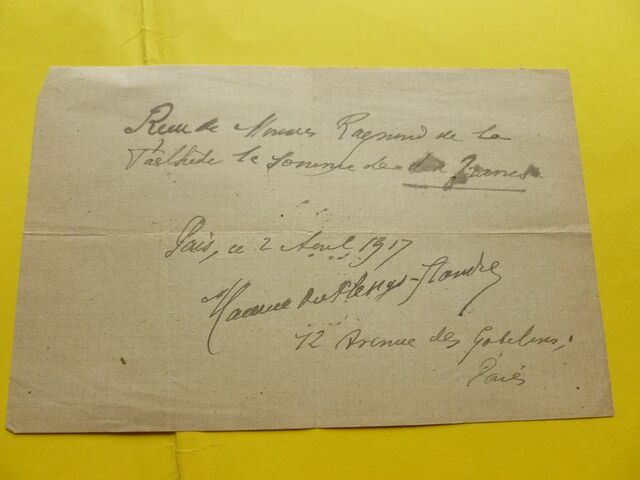 Reçu de Monsieur Raymond de la
Tailhède la somme de dix francs
Paris, ce 2 Avril 1917
Maurice du Plessys-Flandre
12 Avenue des Gobelins,
Paris